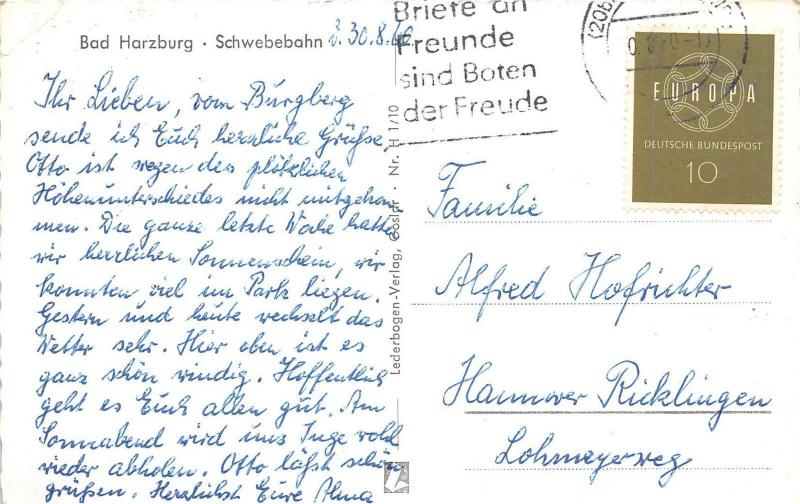 Bad Harzburg · Schwebebahn d. 30.8.60
Ihr Lieben, vom Burgberg
sende ich Euch herzliche Grüße,
Otto ist wegen des plötzlichen
Höhenunterschiedes nicht mitgekom
men. Die ganze letzte Woche hatten
wir herrlichen Sonnenschein, wir
konnten viel im Park liegen.
Gestern und heute wechselt das
Wetter sehr. Hier oben ist es
ganz schön windig. Hoffentlich
geht es Euch allen gut. Am
Sonnabend wird uns Inge wohl
wieder abholen. Otto läßt schön
grüßen. Herzlichst Eure Alma
Lederbogen-Verlag, Goslar · Nr. H 1/10
Briefe an
Freunde
sind Boten
der Freude
(20b)
EUROPA
DEUTSCHE BUNDESPOST
10
Familie
Alfred Hofrichter
Hannover Ricklingen
Lohmeyerweg